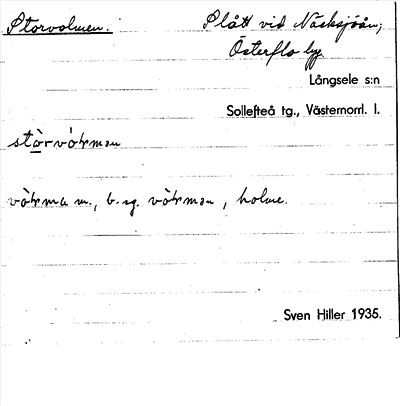 Storvolmen. Slått vid Näsksjöån;
Österflo by
Långsele s:n
Sollefteå tg., Västernorrl. l.
stòrvómən
vòmɑ m., b. sg. vòmən, holme.
Sven Hiller 1935.